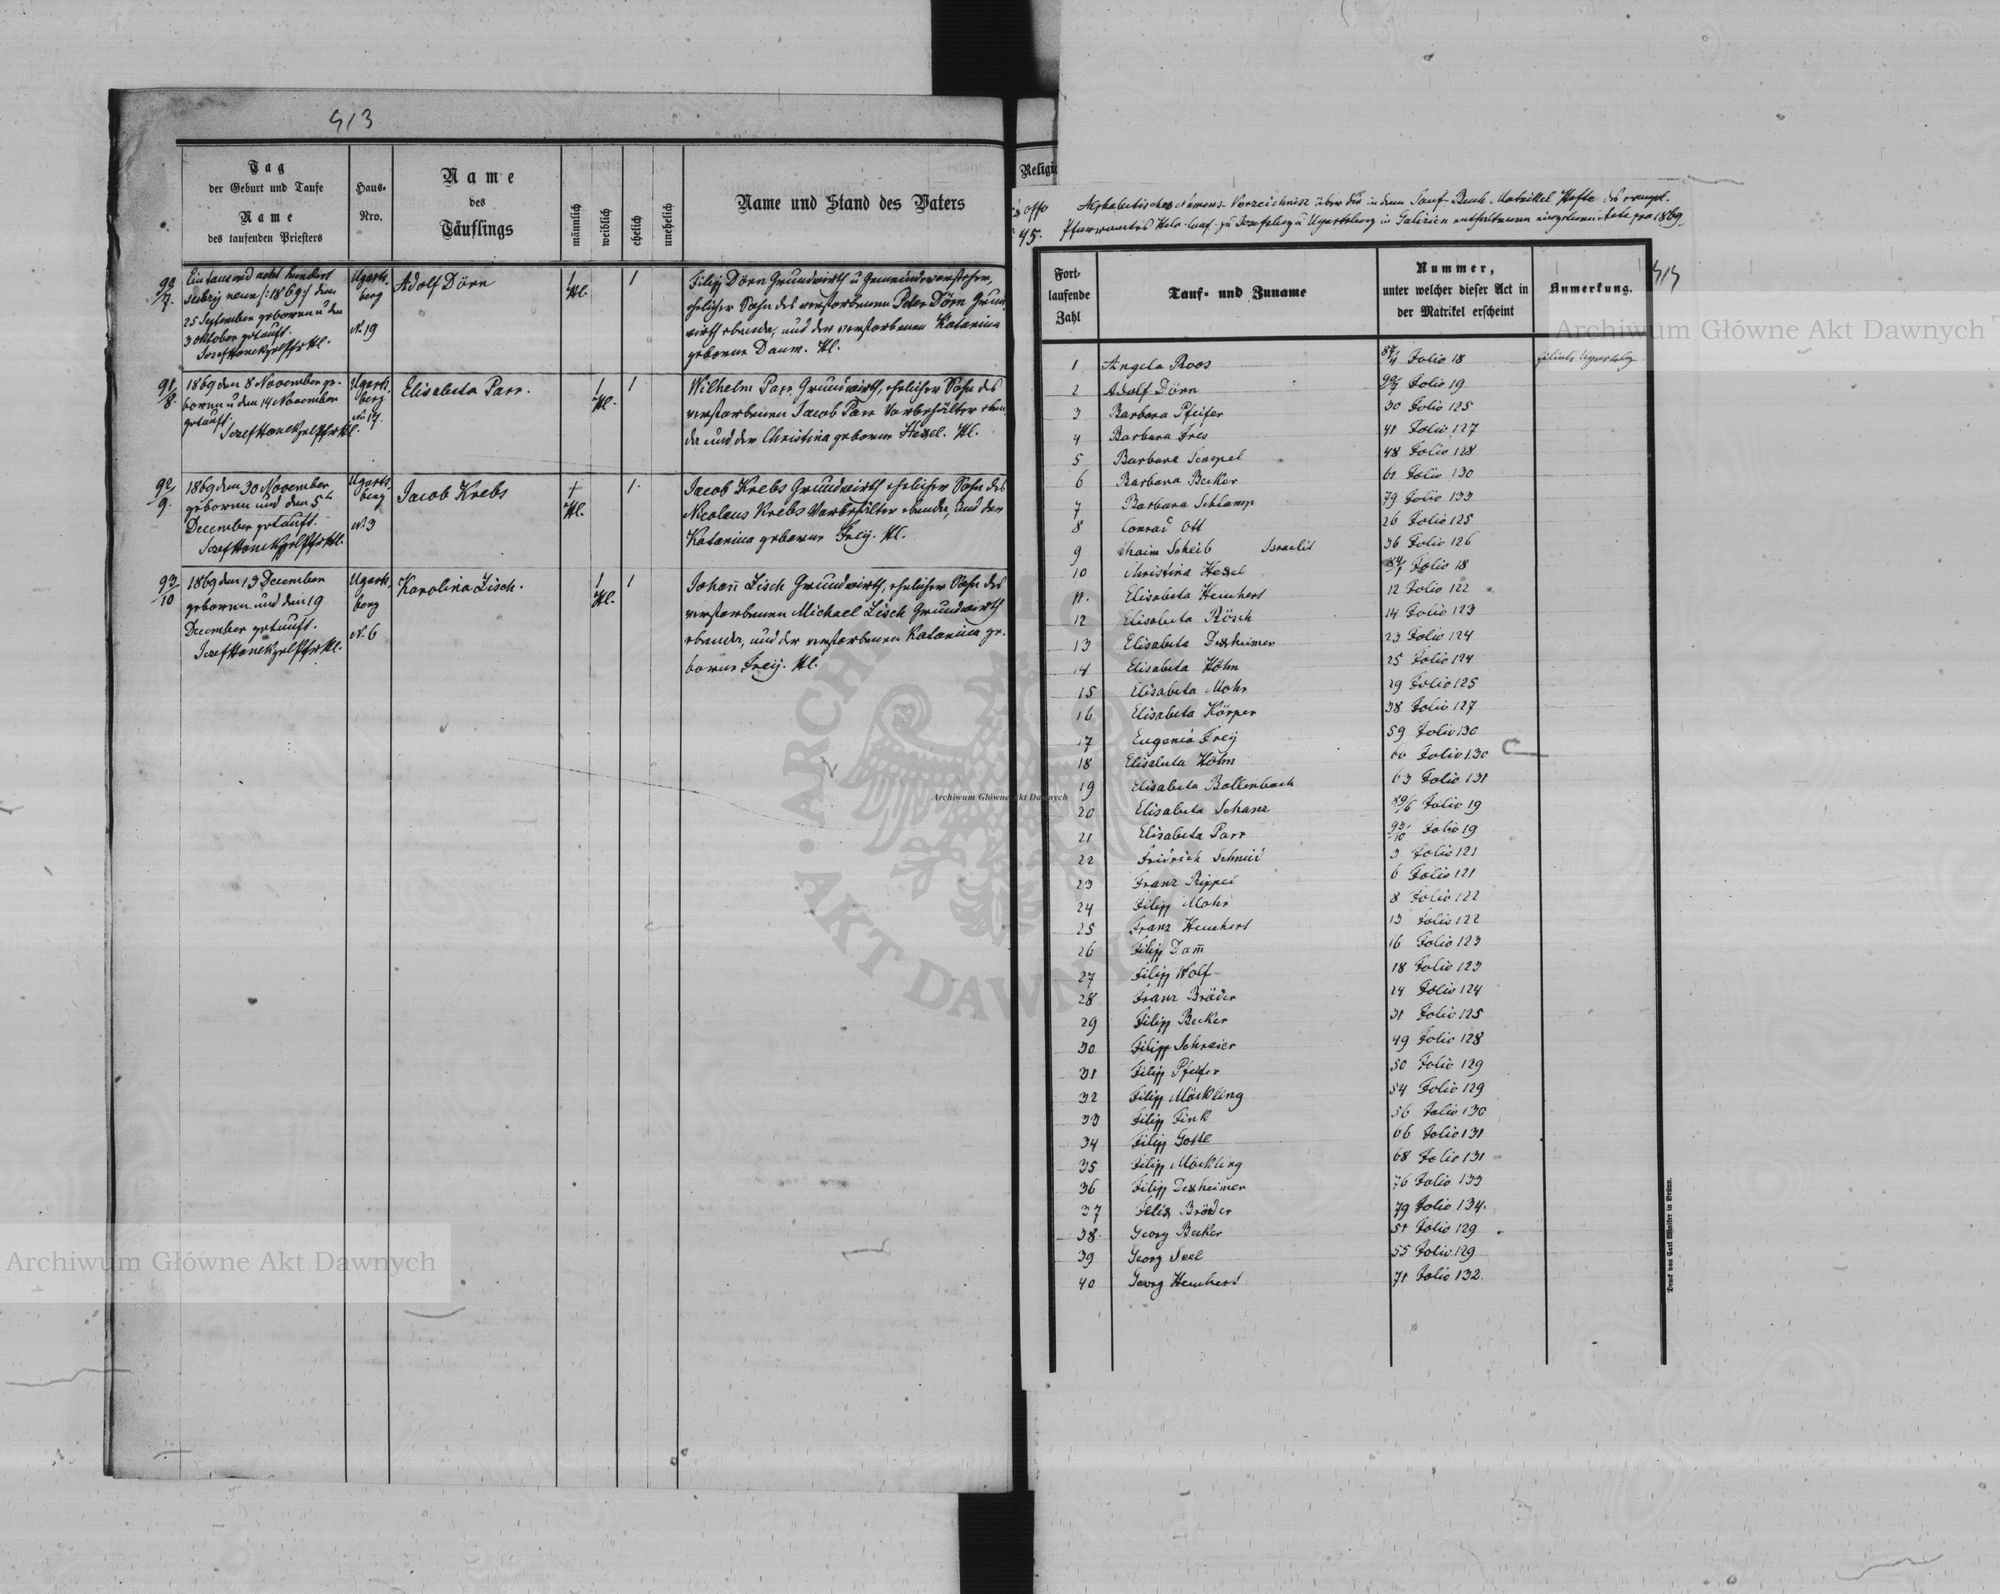 413
Tag
der Geburt und Taufe
Name
des taufenden Priesters
Haus-
Nro.
Name
des
Täuflings
männlich
weiblich
ehelich
unehelich
Name und Stand des Vaters
90/7.
Ein tausend acht hundert
sechzig neun /:1869:/ den
25 September geboren u den
3 Oktober getauft.
Ugarts-
berg
N. 19
Adolf Dörn
1
Hl.
1
Filip Dörn Grundwirth u Gemeindevorsteher,
ehelicher Sohn des verstorbenen Peter Dörn Grund
wirth ebenda, und der verstorbenen Katarina
geborene Daum. Hl.
91/8.
1869 den 8 November ge-
boren u den 14 November
getauft.
Ugarts
berg
No 17.
Elisabeta Parr.
1
Hl.
1
Wilhelm Parr Grundwirth, ehelicher Sohn des
verstorbenen Jacob Parr Vorbehälter eben
da und der Christina geborene Hexel. Hl.
92/9.
1869 den 30 November
geboren und den 5t
December getauft.
Ugarts
berg
N. 3
Jacob Krebs
1
Hl.
1.
Jacob Krebs Grundwirth ehelicher Sohn des
Nicolaus Krebs Vorbehälter ebenda, und der
Katarina geborene Freÿ. Hl.
93/10
1869 den 13 December
geboren und den 19
December getauft.
Ugarts
berg
N. 6
Karolina Zisch.
1
Hl.
1
Johañ Zisch Grundwirth, ehelicher Sohn des
verstorbenen Michael Zisch Grundwirth
ebenda, und der verstorbenen Katarina ge-
borene Freÿ. Hl.
Religi
45.
Alphabetisches Namens-Verzeichniss über die in dem Tauf-Buch-Matrikel Hefte des evangel.
Pfarramtes Helv. Conf. zu Josefsberg u Ugartsberg in Galizien enthaltenen eingetragenen Acte pro 1869.
414
Fort-
laufende
Zahl
Tauf- und Zuname
Nummer,
unter welcher dieser Act in
der Matrikel erscheint
Anmerkung.
1 Angela Roos 87/4 Folio 18 Filiale Ugartsbg
2 Adolf Dörn 90/7 Folio 19
3 Barbara Pfeifer 30 Folio 125
4 Barbara Fres 41 Folio 127
5 Barbara 48 Folio 128
6 Barbara Becker 61 Folio 130
7 Barbara Schlamp 79 Folio 133
8 Conrad Ott 26 Folio 125
9 Chaim Scheib Israelit 36 Folio 126
10 Christina Hexel 84/1 Folio 18
11. Elisabeta Heuchert 12 Folio 122
12 Elisabeta Rösch 14 Folio 123
13 Elisabeta Dexheimer 23 Folio 124
14 Elisabeta Höhn 25 Folio 124
15 Elisabeta Mohr 29 Folio 125
16 Elisabeta Körper 38 Folio 127
17 Eugenia Freÿ 59 Folio 130
18 Elisabeta Höhn 60 Folio 130
19 Elisabeta Bollenbach 63 Folio 131
20 Elisabeta Schanz 89/6 Folio 19
21 Elisabeta Parr 93/10 Folio 19
22 Fridrich Schmid 3 Folio 121
23 Franz Rippel 6 Folio 121
24 Filipp Mohr 8 Folio 122
25 Franz Heuchert 13 Folio 122
26 Filipp Dam̄ 16 Folio 123
27 Filipp Wolf 18 Folio 123
28 Franz Bröder 24 Folio 124
29 Filipp Becker 31 Folio 125
30 Filipp Schreier 49 Folio 128
31 Filipp Pfeifer 50 Folio 129
32 Filipp Möckling 54 Folio 129
33 Filipp Fink 56 Folio 130
34 Filipp Gottl 66 Folio 131
35 Filipp Möckling 68 Folio 131
36 Filipp Dexheimer 76 Folio 133
37 Felix Bröder 79 Folio 134.
38. Georg Becker 51 Folio 129
39 Georg Seel 55 Folio 129
40 Georg Heuchert 71 Folio 132.
Druck von Carl Winiker in Brünn.
Archiwum Główne Akt Dawnych
Archiwum Główne Akt Dawnych
Archiwum Główne Akt Dawnych
ARCHI
AKT DAWN